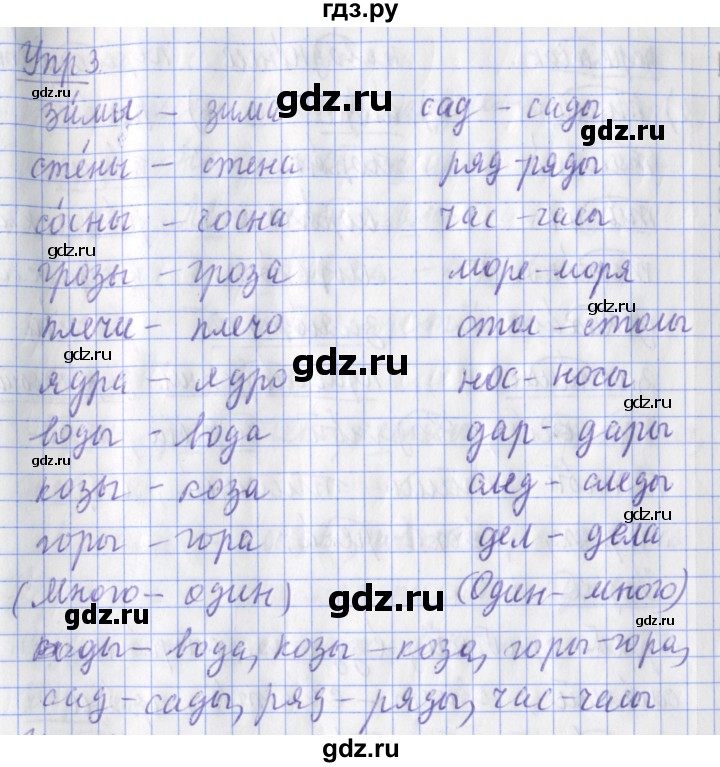 гдз.ру
Упр 3.
зи́мы – зима сад – сады
сте́ны – стена ряд – ряды
со́сны – сосна час – часы
грозы – гроза море – моря
плечи – плечо стол – столы
ядра – ядро нос – носы
воды – вода дар – дары
козы – коза след – следы
горы – гора дел – дела
(много – один) (Один – много)
воды – вода, козы – коза, горы – гора,
сад – сады, ряд – ряды, час – часы
gdz.ru
gdz.ru
gdz.ru
gdz.ru
gdz.ru
gdz.ru
gdz.ru
gdz.ru
gdz.ru
gdz.ru
gdz.ru
gdz.ru
gdz.ru
gdz.ru